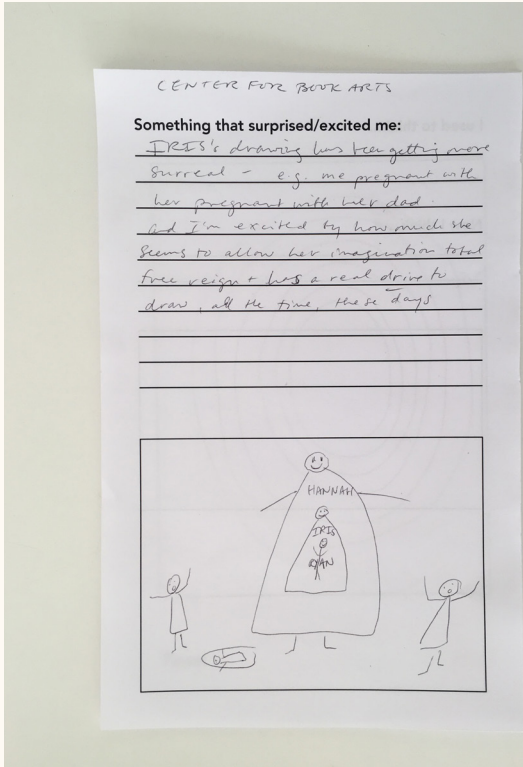 CENTER FOR BOOK ARTS
Something that surprised/excited me:
IRIS's drawing has been getting more
surreal - e.g. me pregnant with
her pregnant with her dad.
and I'm excited by how much she
seems to allow her imagination total
free reign + has a real drive to
draw, all the time, these days
HANNAH
IRIS
DAN